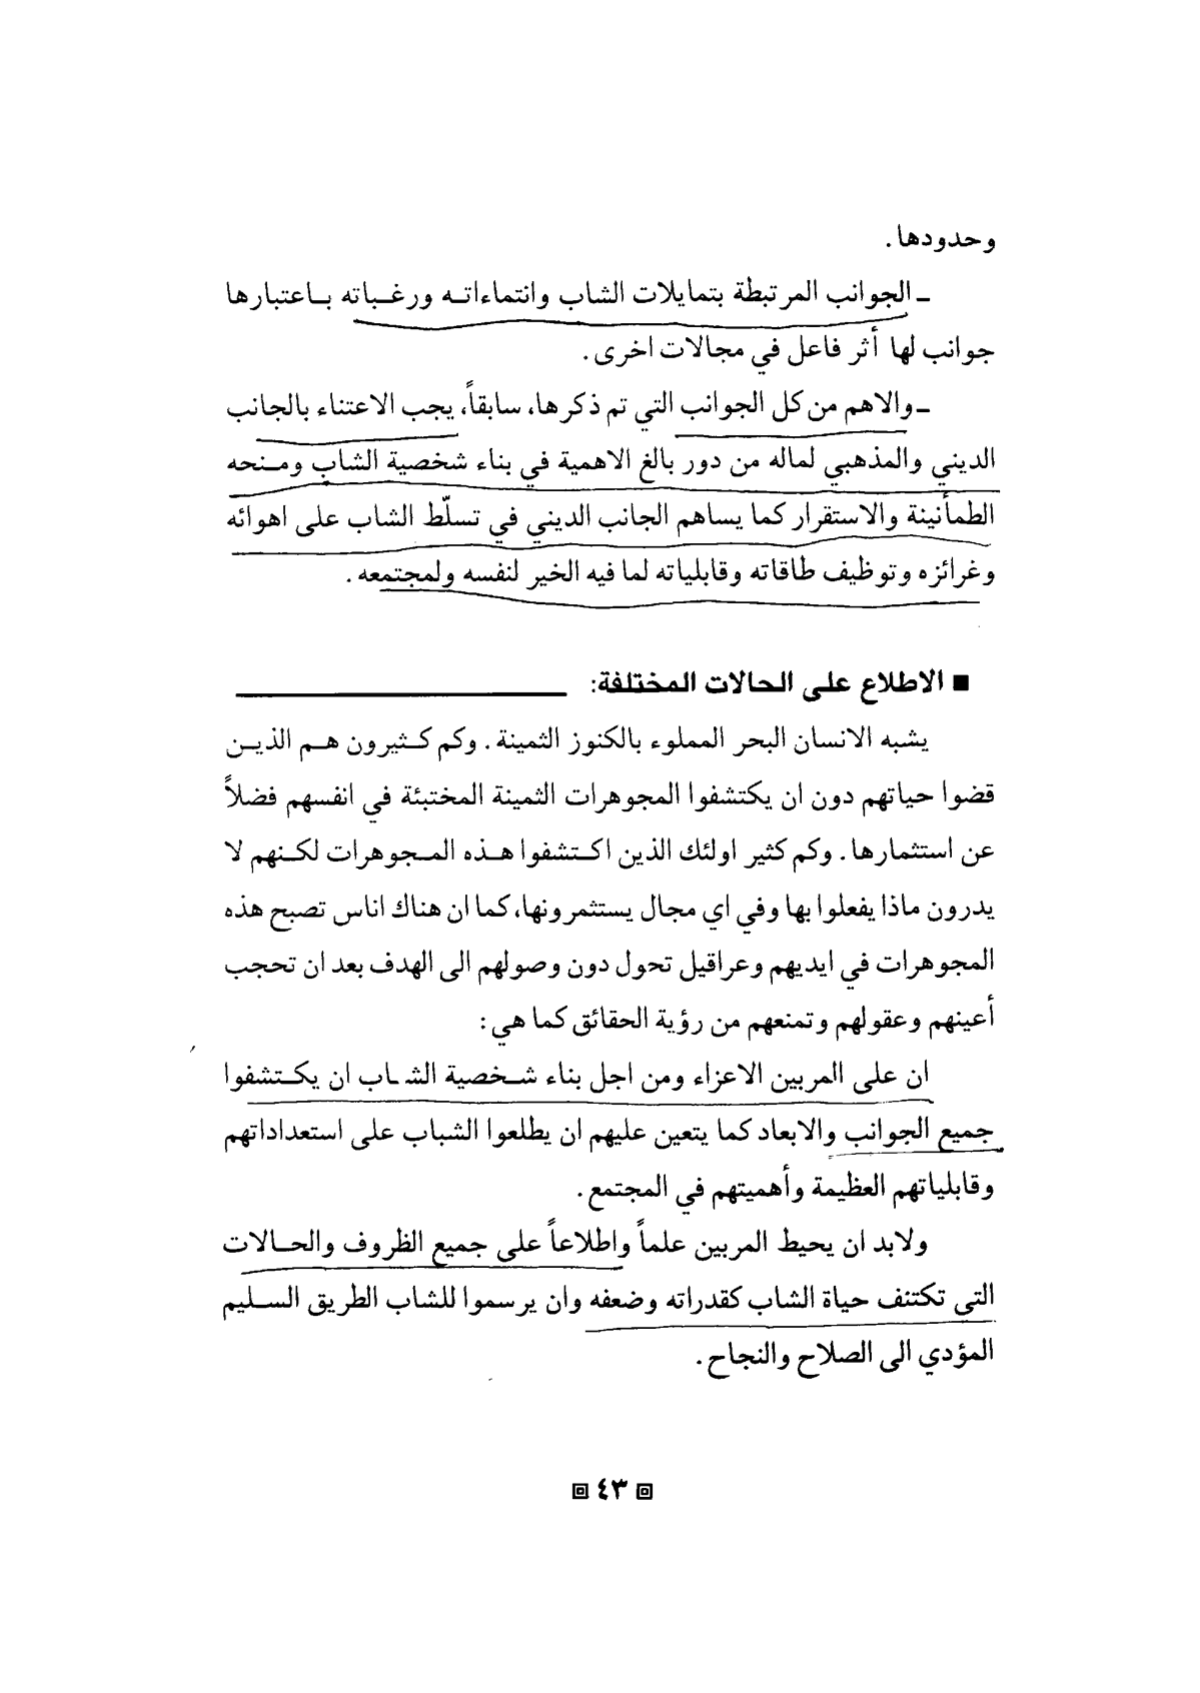 وحدودها.
ـ الجوانب المرتبطة بتمايلات الشاب وانتماءاته ورغباته باعتبارها
جوانب لها أثر فاعل في مجالات اخرى.
ـ والاهم من كل الجوانب التي تم ذكرها، سابقاً، يجب الاعتناء بالجانب
الديني والمذهبي لماله من دور بالغ الاهمية في بناء شخصية الشاب ومنحه
الطمأنينة والاستقرار كما يساهم الجانب الديني في تسلّط الشاب على اهوائه
وغرائزه وتوظيف طاقاته وقابلياته لما فيه الخير لنفسه ولمجتمعه.
■ الاطلاع على الحالات المختلفة:
يشبه الانسان البحر المملوء بالكنوز الثمينة. وكم كثيرون هم الذين
قضوا حياتهم دون ان يكتشفوا المجوهرات الثمينة المختبئة في انفسهم فضلاً
عن استثمارها. وكم كثير اولئك الذين اكتشفوا هذه المجوهرات لكنهم لا
يدرون ماذا يفعلوا بها وفي اي مجال يستثمرونها، كما ان هناك اناس تصبح هذه
المجوهرات في ايديهم وعراقيل تحول دون وصولهم الى الهدف بعد ان تحجب
أعينهم وعقولهم وتمنعهم من رؤية الحقائق كما هي:
ان على المربين الاعزاء ومن اجل بناء شخصية الشاب ان يكتشفوا
جميع الجوانب والابعاد كما يتعين عليهم ان يطلعوا الشباب على استعداداتهم
وقابلياتهم العظيمة وأهميتهم في المجتمع.
ولابد ان يحيط المربين علماً واطلاعاً على جميع الظروف والحالات
التي تكتنف حياة الشاب كقدراته وضعفه وان يرسموا للشاب الطريق السليم
المؤدي الى الصلاح والنجاح.
٤٣